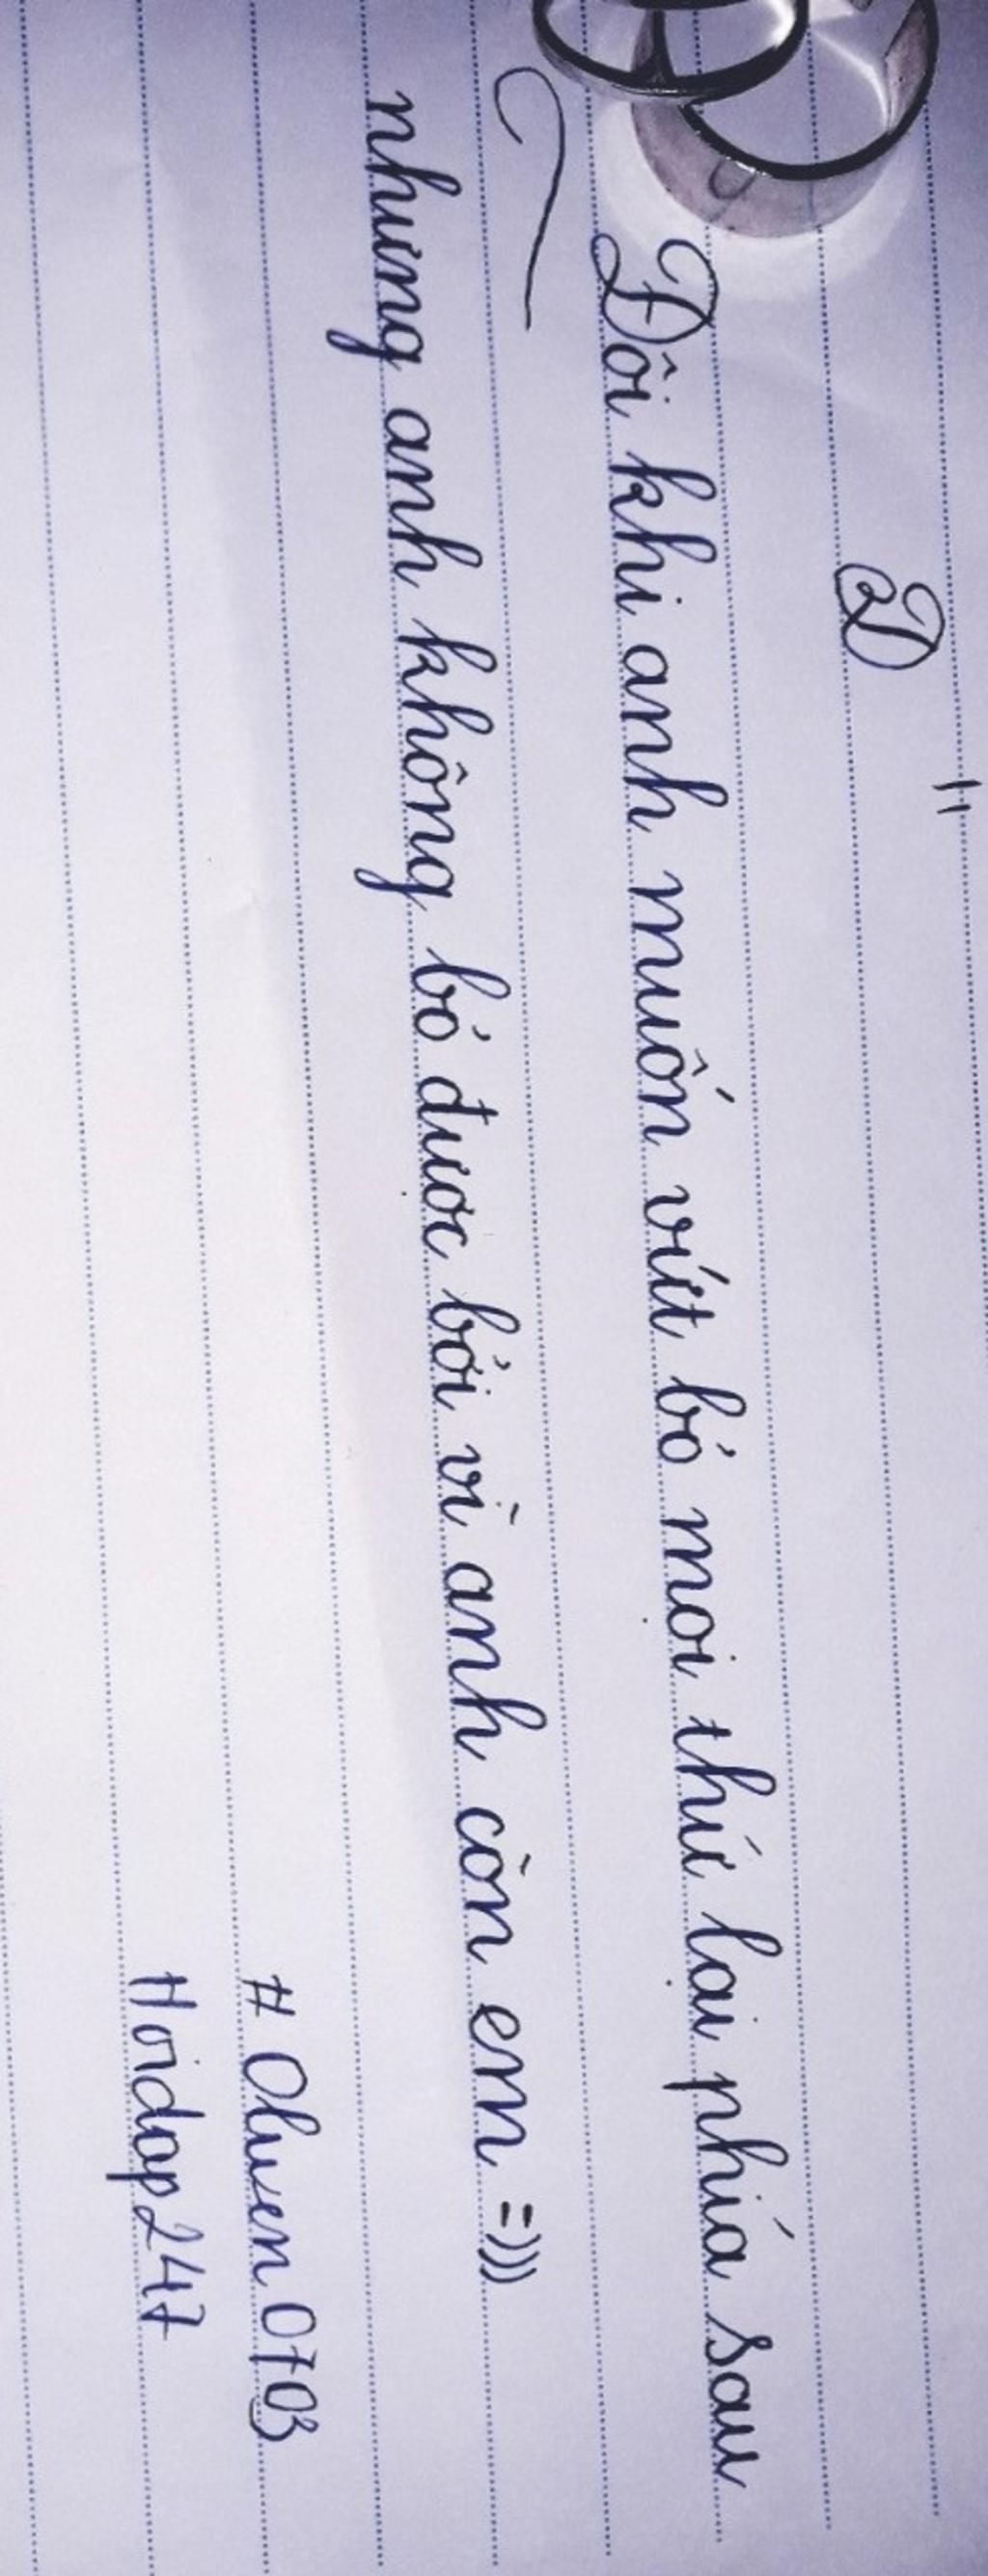 D
"
Đôi khi anh muốn vứt bỏ mọi thứ lại phía sau
nhưng anh không bỏ được bởi vì anh còn em =)))
# Oluen 0703
Hoidap247